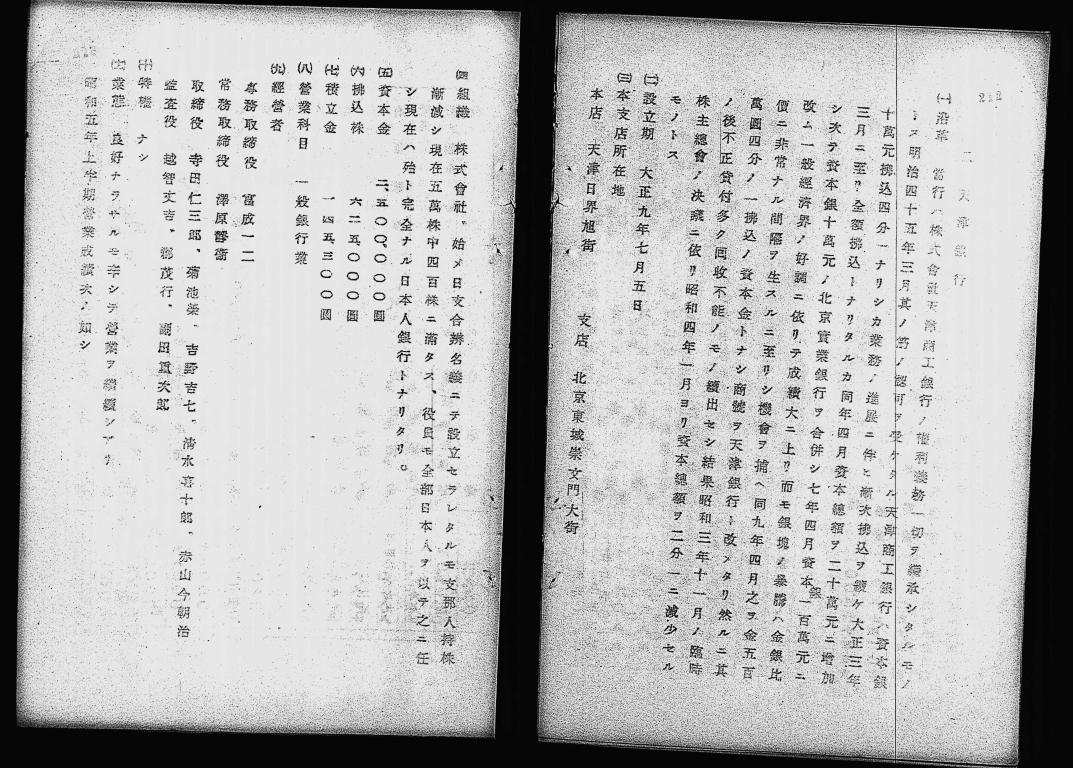 212
二 天津銀行
㈠沿革 當行ハ株式會社天津商工銀行ノ權利義務一切ヲ繼承シタルモノ
トス明治四十五年三月其ノ筋ノ認可ヲ受ケタル天津商工銀行ハ資本銀
十萬元拂込四分一ナリシカ業務ノ進展ニ伴ヒ漸次拂込ヲ續ケ大正三年
三月ニ至リ全額拂込トナリタルカ同年四月資本總額ヲ二十萬元ニ增加
シ次テ資本銀十萬元ノ北京實業銀行ヲ合併シ七年四月資本銀一百萬元ニ
改ム一般經濟界ノ好調ニ依リテ成績大ニ上リ而モ銀塊ノ暴騰ハ金銀比
價ニ非常ナル間隔ヲ生スルニ至リシ機會ヲ捕ヘ同九年四月之ヲ金五百
萬圓四分ノ一拂込ノ資本金トナシ商號ヲ天津銀行ト改メタリ然ルニ其
ノ後不正貸付多ク回收不能ノモノ續出セシ結果昭和三年十一月ノ臨時
株主總會ノ決議ニ依リ昭和四年一月ヨリ資本總額ヲ二分一ニ減少セル
モノトス
㈡設立期 大正九年七月五日
㈢本支店所在地
本店 天津日界旭街 支店 北京東城崇文門大街
㈣組織 株式會社、始メ日支合辨名義ニテ設立セラレタルモ支那人持株
漸減シ現在五萬株中四百株ニ滿タス、役員モ全部日本人ヲ以テ之ニ任
シ現在ハ殆ト完全ナル日本人銀行トナリタリ。
㈤資本金 二、五〇〇、〇〇〇圓
㈥拂込株 六二五、〇〇〇圓
㈦積立金 一四五、三〇〇圓
㈧營業科目 一般銀行業
㈨經營者
專務取締役 富成一二
常務取締役 澤原
取締役 寺田仁三郎、菊池榮、吉野吉七、清水喜十郎、赤山今朝治
監査役 越智丈吉、郷茂行、副田重次郎
㈩特權 ナシ
業態 良好ナラサルモ辛シテ營業ヲ繼續シアリ
昭和五年上半期營業成績次ノ如シ